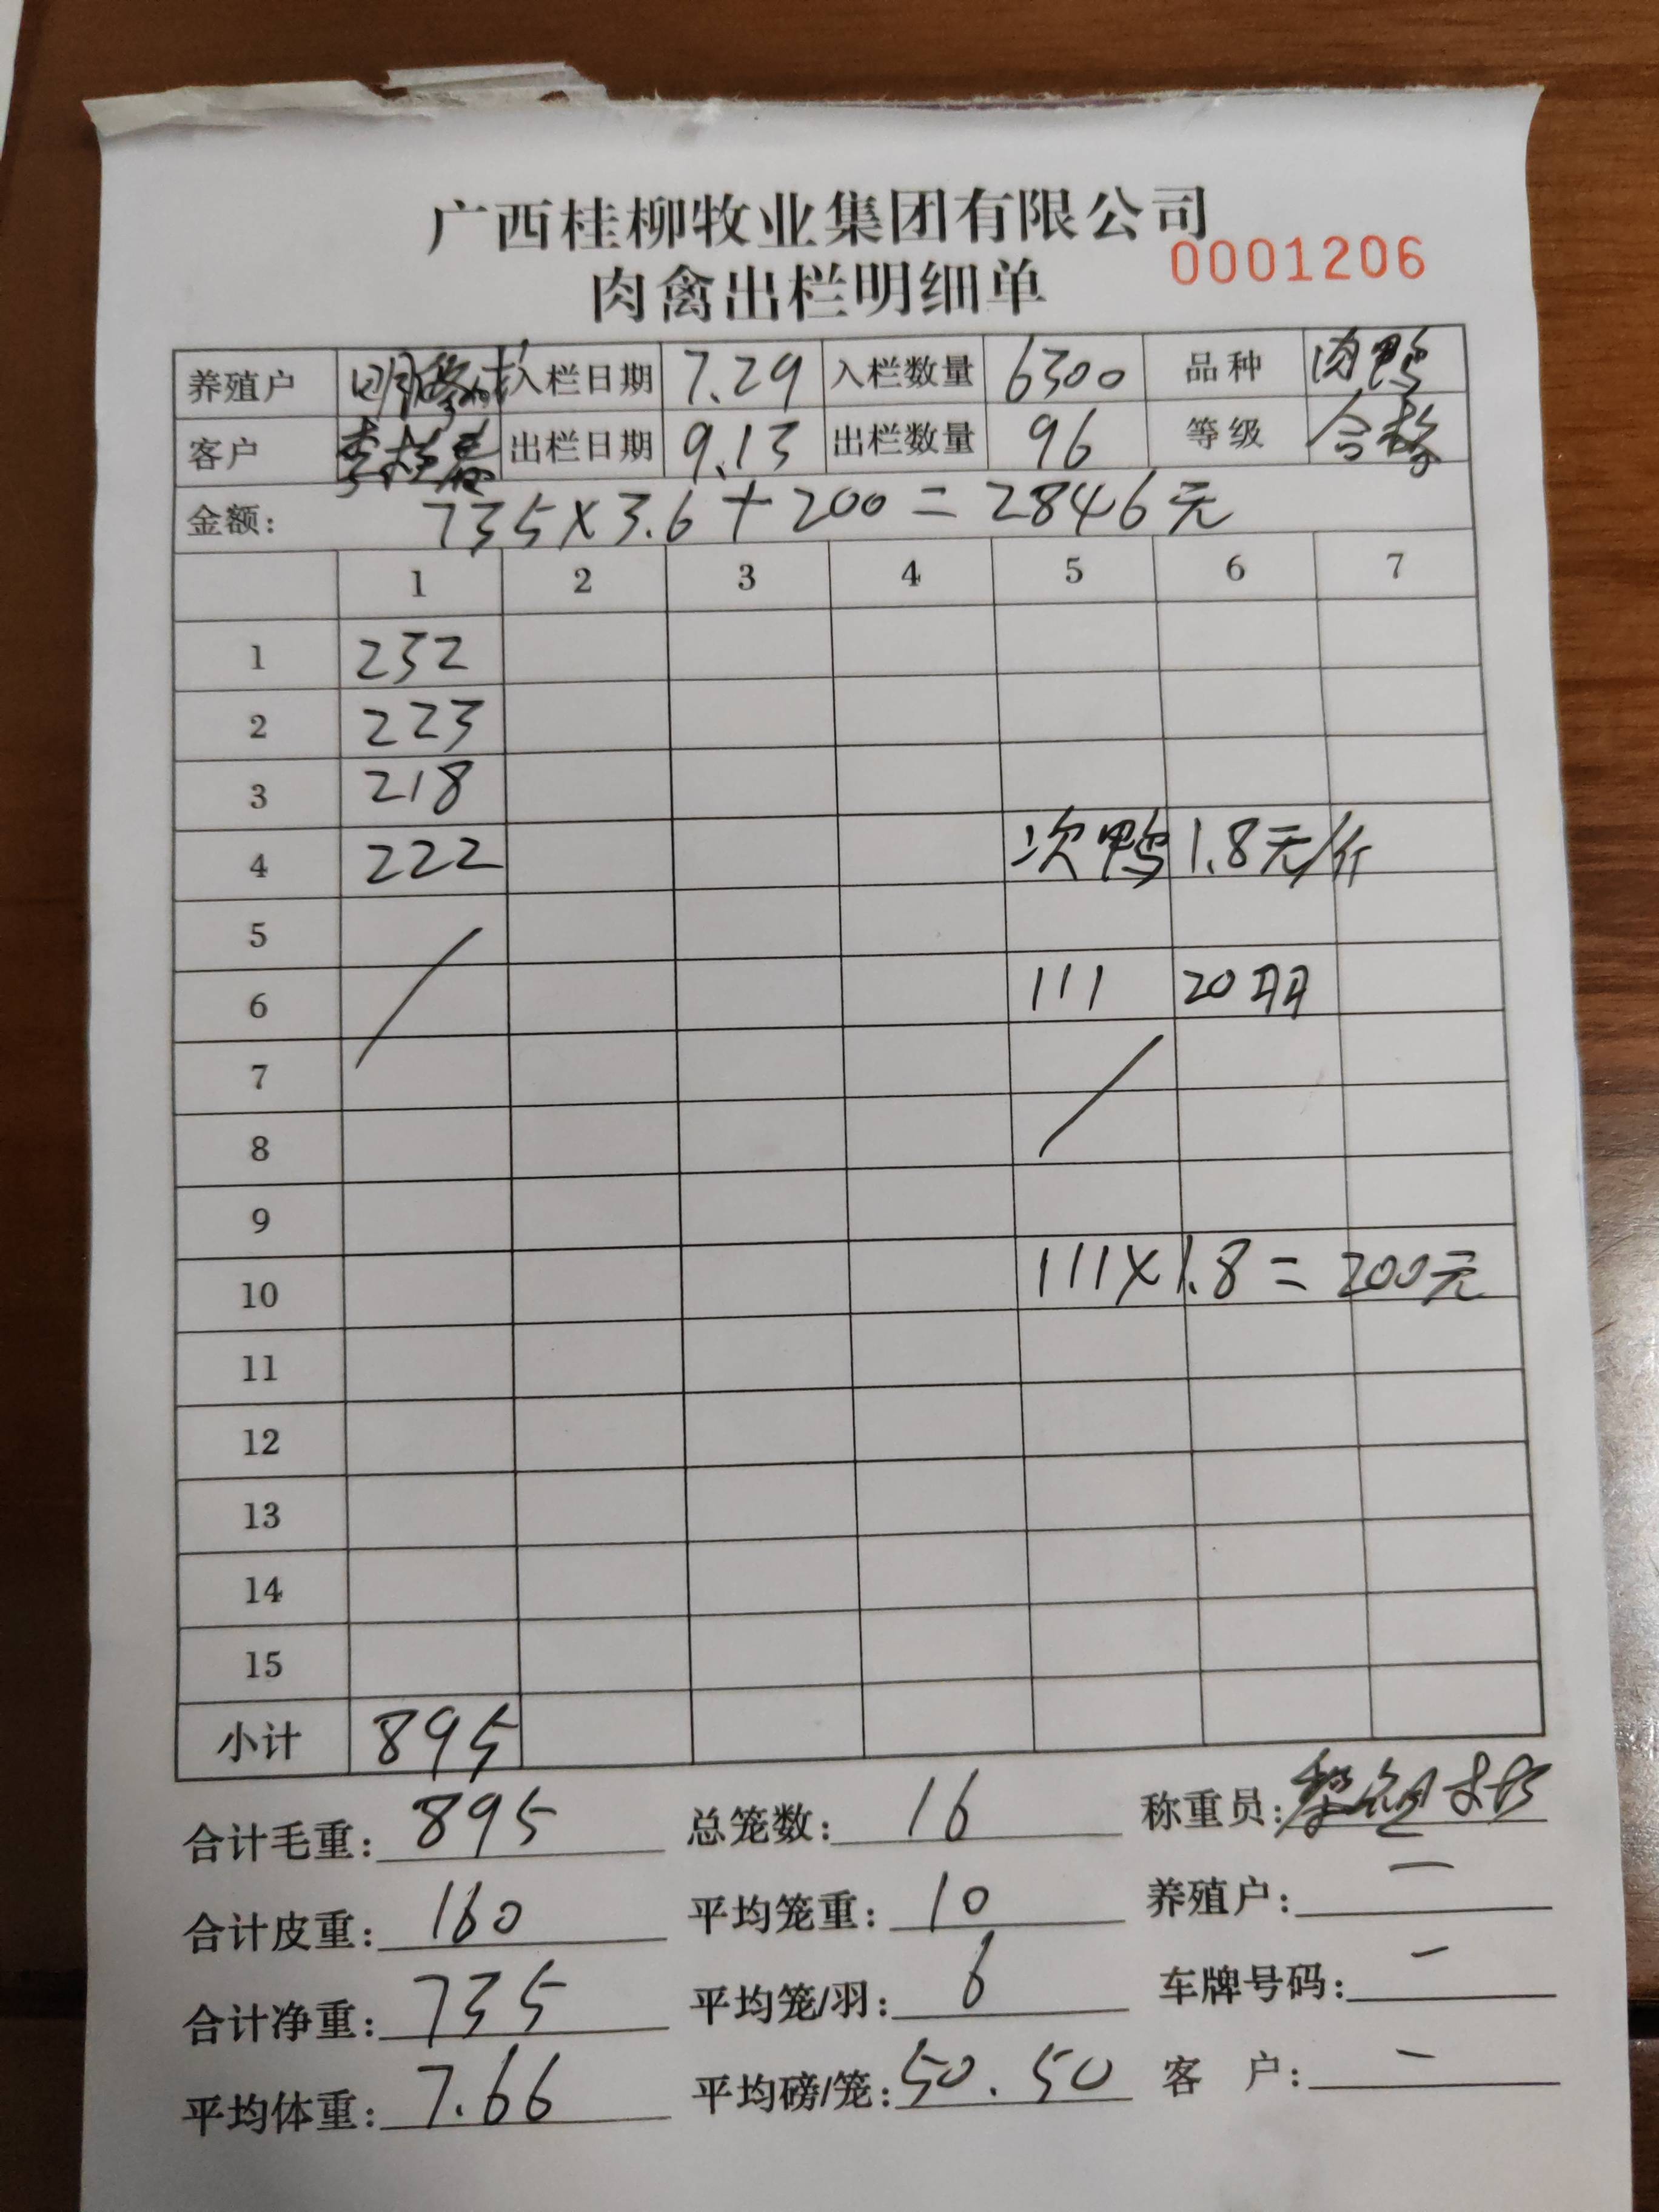 广西桂柳牧业集团有限公司
肉禽出栏明细单 0001206
养殖户 入栏日期 7.29 入栏数量 6300 品种 肉鸭
客户 出栏日期 9.13 出栏数量 96 等级 合格
金额: 735×3.6+200=2846元
1 2 3 4 5 6 7
1 232
2 223
3 218
4 222 次鸭 1.8元/斤
5
6 111 20羽
7
8
9
10 111×1.8=200元
11
12
13
14
15
小计 895
合计毛重: 895 总笼数: 16 称重员:
合计皮重: 160 平均笼重: 10 养殖户: —
合计净重: 735 平均笼/羽: 6 车牌号码: —
平均体重: 7.66 平均磅/笼: 50.50 客 户: —